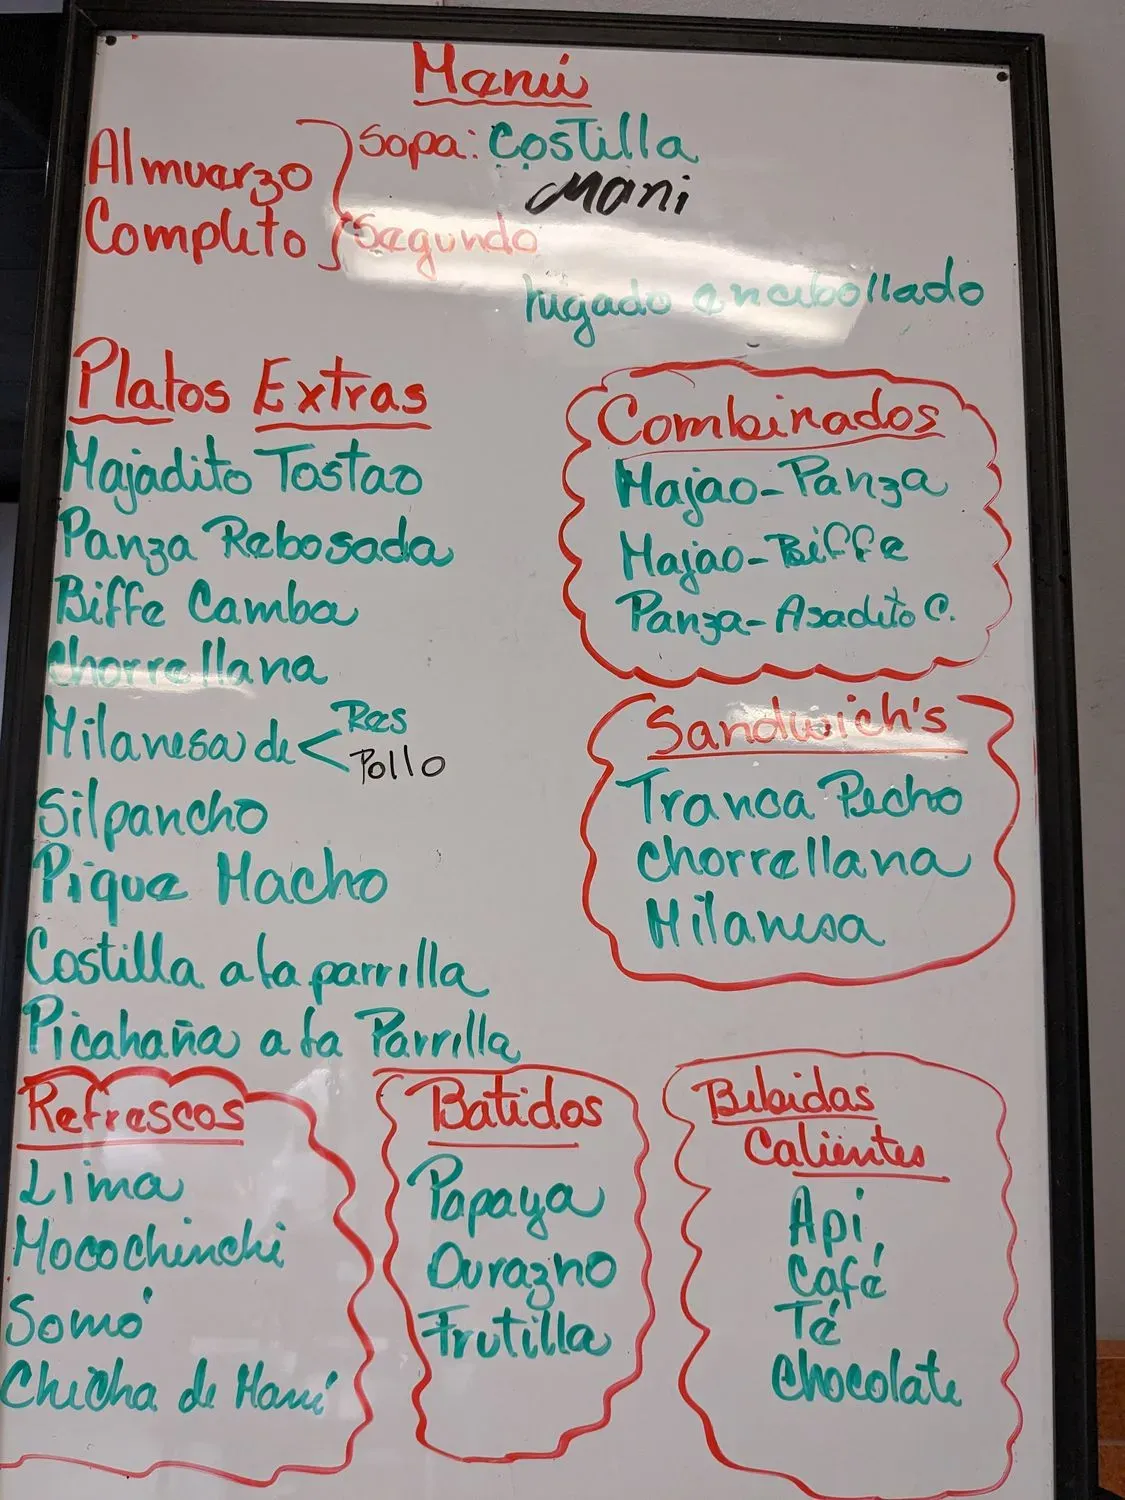 Menú
Almuerzo
Completo
Sopa: Costilla
Mani
Segundo
higado encebollado
Platos Extras
Majadito Tostao
Panza Rebosada
Biffe Camba
Chorrellana
Milanesa de < Res
Pollo
Silpancho
Pique Macho
Costilla a la parrilla
Picahaña a la Parrilla
Combinados
Majao-Panza
Majao-Biffe
Panza-Asadito C.
Sandwich's
Tranca Pecho
Chorrellana
Milanesa
Refrescos
Lima
Mocochinchi
Somó
Chicha de Maní
Batidos
Papaya
Durazno
Frutilla
Bebidas
Calientes
Api
Café
Té
Chocolate